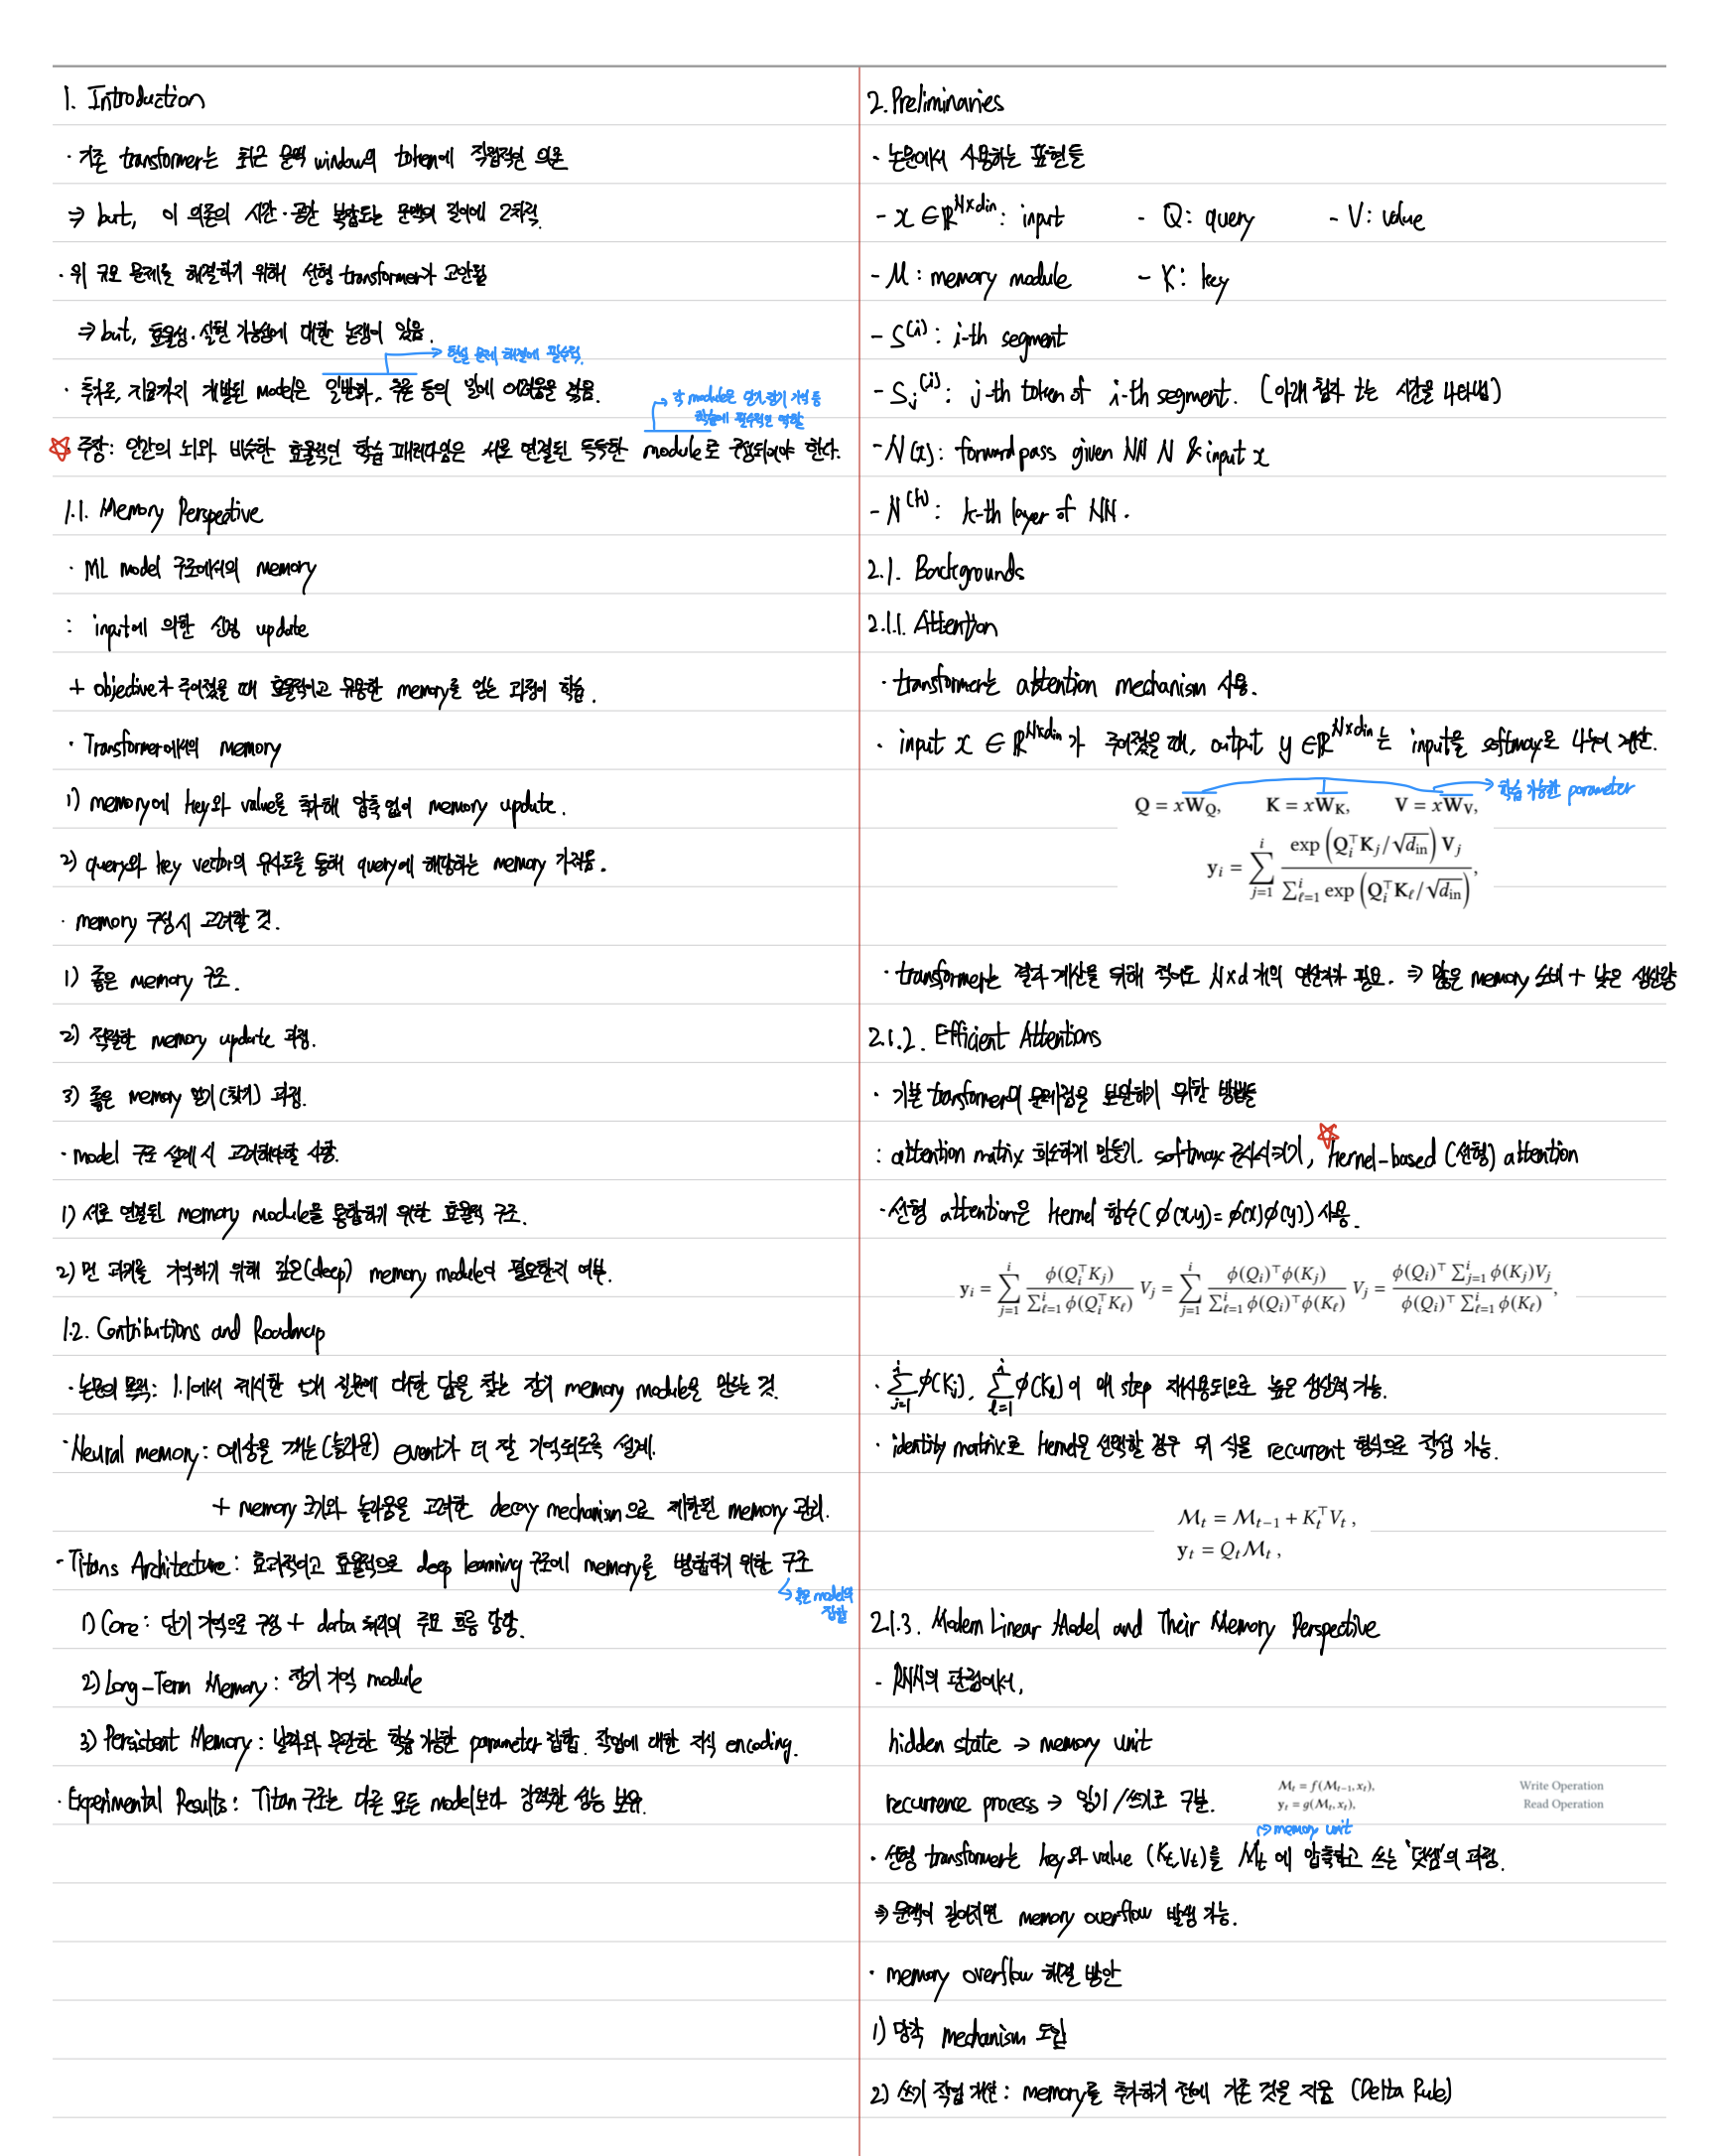 1. Introduction
· 기존 transformer는 최근 문맥 window의 token에 직접적인 의존
⇒ but, 이 의존의 시간·공간 복잡도는 문맥의 길이에 2차적.
· 위 규모 문제를 해결하기 위해 선형 transformer가 고안됨
⇒ but, 효율성·실현 가능성에 대한 논쟁이 있음.
→ 현실 문제 해결에 필수적.
· 추가로, 지금까지 개발된 model은 일반화, 추론 등의 일에 어려움을 겪음.
→ 각 module은 단기·장기 기억 등
학습에 필수적인 역할
☆ 주장: 인간의 뇌와 비슷한 효율적인 학습 패러다임은 서로 연결된 독특한 module로 구성되어야 한다.
1.1. Memory Perspective
· ML model 구조에서의 memory
: input에 의한 신경 update
+ objective가 주어졌을 때 효율적이고 유용한 memory를 얻는 과정이 학습.
· Transformer에서의 memory
1) memory에 key와 value를 추가해 압축 없이 memory update.
2) query와 key vector의 유사도를 통해 query에 해당하는 memory 가져옴.
· memory 구성 시 고려할 것.
1) 좋은 memory 구조.
2) 적절한 memory update 과정.
3) 좋은 memory 읽기(찾기) 과정.
· model 구조 설계 시 고려해야할 사항.
1) 서로 연결된 memory module을 통합하기 위한 효율적 구조.
2) 먼 과거를 기억하기 위해 깊은(deep) memory module이 필요한지 여부.
1.2. Contributions and Roadmap
· 논문의 목적: 1.1에서 제시한 5개 질문에 대한 답을 찾는 장기 memory module을 만드는 것.
· Neural memory: 예상을 깨는(놀라운) event가 더 잘 기억되도록 설계.
+ memory 크기와 놀라움을 고려한 decay mechanism으로 제한된 memory 관리.
- Titans Architecture: 효과적이고 효율적으로 deep learning 구조에 memory를 병합하기 위한 구조
model의
집합
1) Core: 단기 기억으로 구성 + data 처리의 주요 흐름 담당.
2) Long-Term Memory: 장기 기억 module
3) Persistent Memory: 날짜와 무관한 학습 가능한 parameter 집합. 작업에 대한 지식 encoding.
· Experimental Results: Titan 구조는 다른 모든 model보다 강력한 성능 보유.
2. Preliminaries
· 논문에서 사용하는 표현들
- x ∈ ℝ^{N×din}: input - Q: query - V: value
- M: memory module - K: key
- S^{(i)}: i-th segment
- S_j^{(i)}: j-th token of i-th segment. (아래 첨자 t는 시간을 나타냄)
- N(x): forward pass given NN N & input x
- N^{(k)}: k-th layer of NN.
2.1. Backgrounds
2.1.1. Attention
· transformer는 attention mechanism 사용.
· input x ∈ ℝ^{N×din}가 주어졌을 때, output y ∈ ℝ^{N×din}는 input을 softmax로 나누어 계산.
→ 학습 가능한 parameter
Q = xW_Q, K = xW_K, V = xW_V,
y_i = ∑_{j=1}^{i} exp(Q_i^⊤ K_j/√d_in) V_j / ∑_{ℓ=1}^{i} exp(Q_i^⊤ K_ℓ/√d_in),
· transformer는 결과 계산을 위해 적어도 N×d 개의 연산자가 필요. ⇒ 많은 memory 소비 + 낮은 생산량
2.1.2. Efficient Attentions
· 기본 transformer의 문제점을 보완하기 위한 방법들
: attention matrix 희소하게 만들기. softmax 근사시키기, ☆ kernel-based (선형) attention
· 선형 attention은 kernel 함수(ϕ(x,y)=ϕ(x)ϕ(y)) 사용.
y_i = ∑_{j=1}^{i} ϕ(Q_i^⊤ K_j) / ∑_{ℓ=1}^{i} ϕ(Q_i^⊤ K_ℓ) V_j = ∑_{j=1}^{i} ϕ(Q_i)^⊤ϕ(K_j) / ∑_{ℓ=1}^{i} ϕ(Q_i)^⊤ϕ(K_ℓ) V_j = ϕ(Q_i)^⊤ ∑_{j=1}^{i} ϕ(K_j)V_j / ϕ(Q_i)^⊤ ∑_{ℓ=1}^{i} ϕ(K_ℓ),
· ∑_{j=1}^{i} ϕ(K_j), ∑_{ℓ=1}^{i} ϕ(K_ℓ)이 매 step 재사용되므로 높은 생산력 가능.
· identity matrix로 kernel을 선택할 경우 위 식을 recurrent 형식으로 작성 가능.
M_t = M_{t-1} + K_t^⊤ V_t ,
y_t = Q_t M_t ,
2.1.3. Modern Linear Model and Their Memory Perspective
- RNN의 관점에서,
hidden state → memory unit
recurrence process → 읽기/쓰기로 구분.
M_t = f(M_{t-1}, x_t), Write Operation
y_t = g(M_t, x_t), Read Operation
→ memory unit
· 선형 transformer는 key와 value (K_t, V_t)를 M_t에 압축하고 쓰는 '덧셈'의 과정.
⇒ 문맥이 길어지면 memory overflow 발생 가능.
· memory overflow 해결 방안
1) 망각 mechanism 도입
2) 쓰기 작업 개선: memory를 추가하기 전에 기존 것을 지움 (Delta Rule)